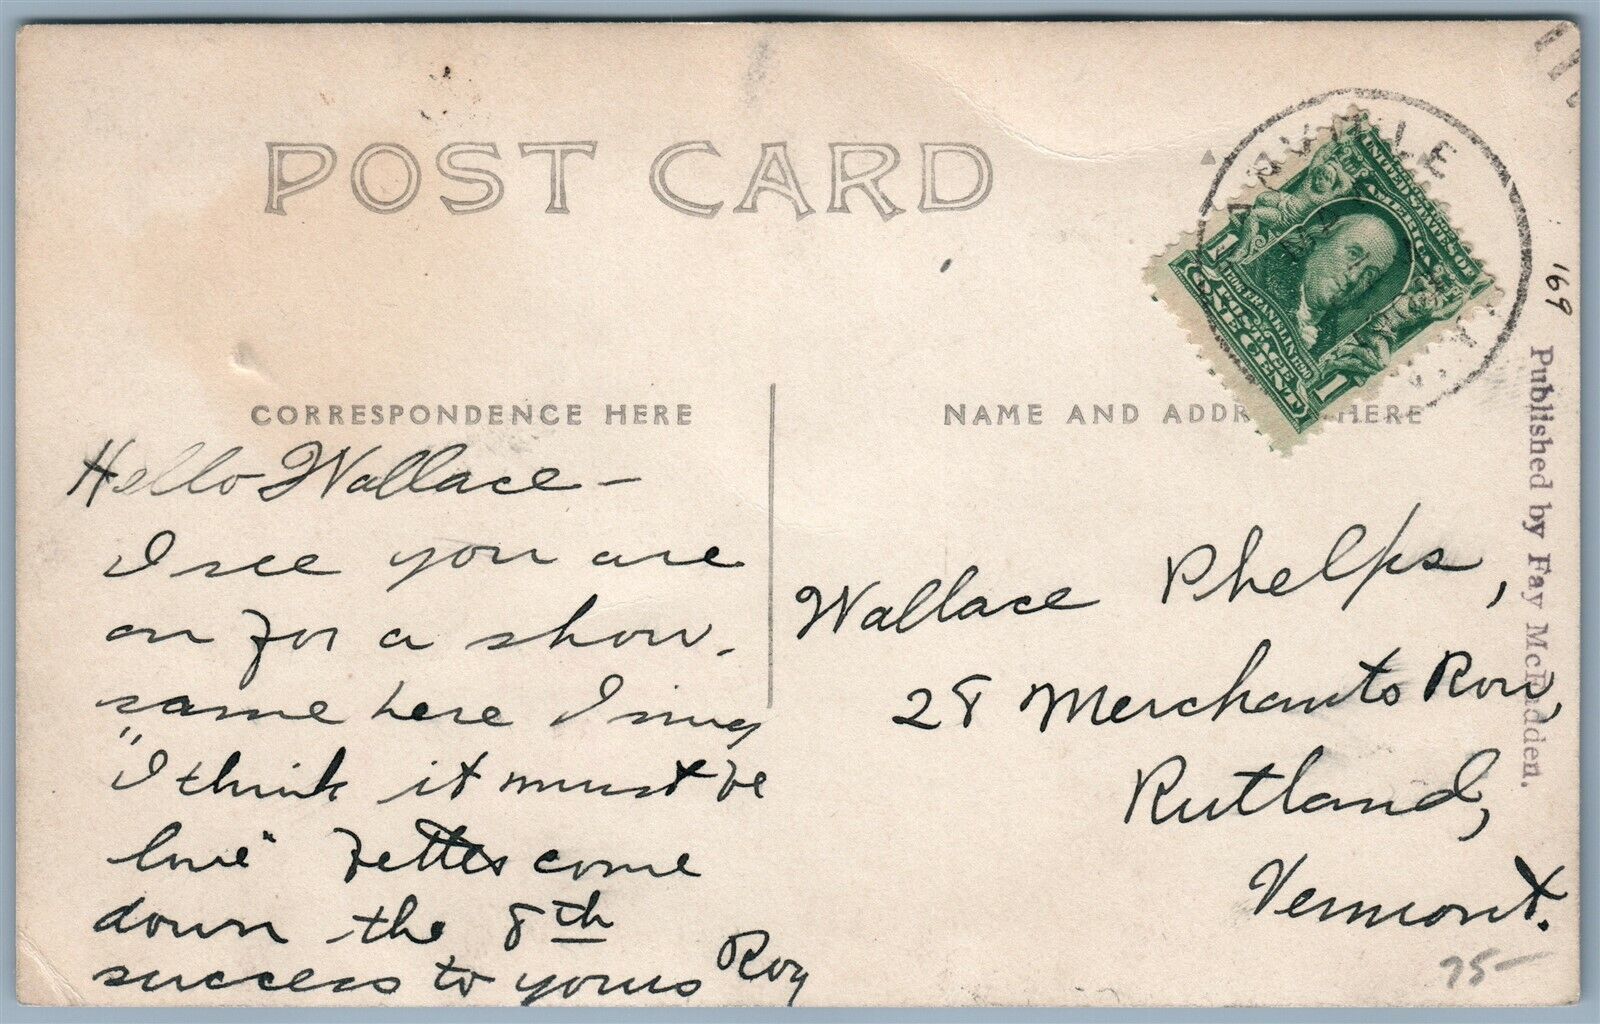 POST CARD
CORRESPONDENCE HERE
Hello Wallace -
I see you are
on for a show.
same here I sing
"I think it must be
love" Better come
down the 8th
success to yours Roy
NAME AND ADDR HERE
Wallace Phelps,
28 Merchants Row,
Rutland,
Vermont.
75-
UNITED STATES OF
AMERICA
1706 FRANKLIN 1790
POSTAGE
ONE CENT
1 1
VILLE
VT
169
Published by Fay McFadden.